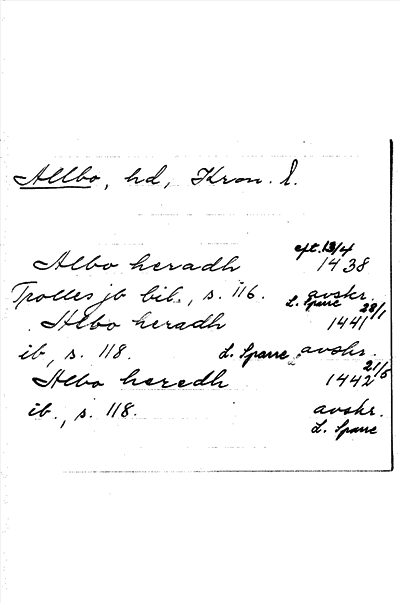 Allbo, hd, Kron. l.
Albo heradh eft. 13/4 1438
Trolles jb bil., s. 116. avskr. L. Sparre
Albo heradh 28/1 1441
ib, s. 118. L. Sparre, avskr.
Albo heredh 21/5 1442
ib., s. 118. avskr.
L. Sparre